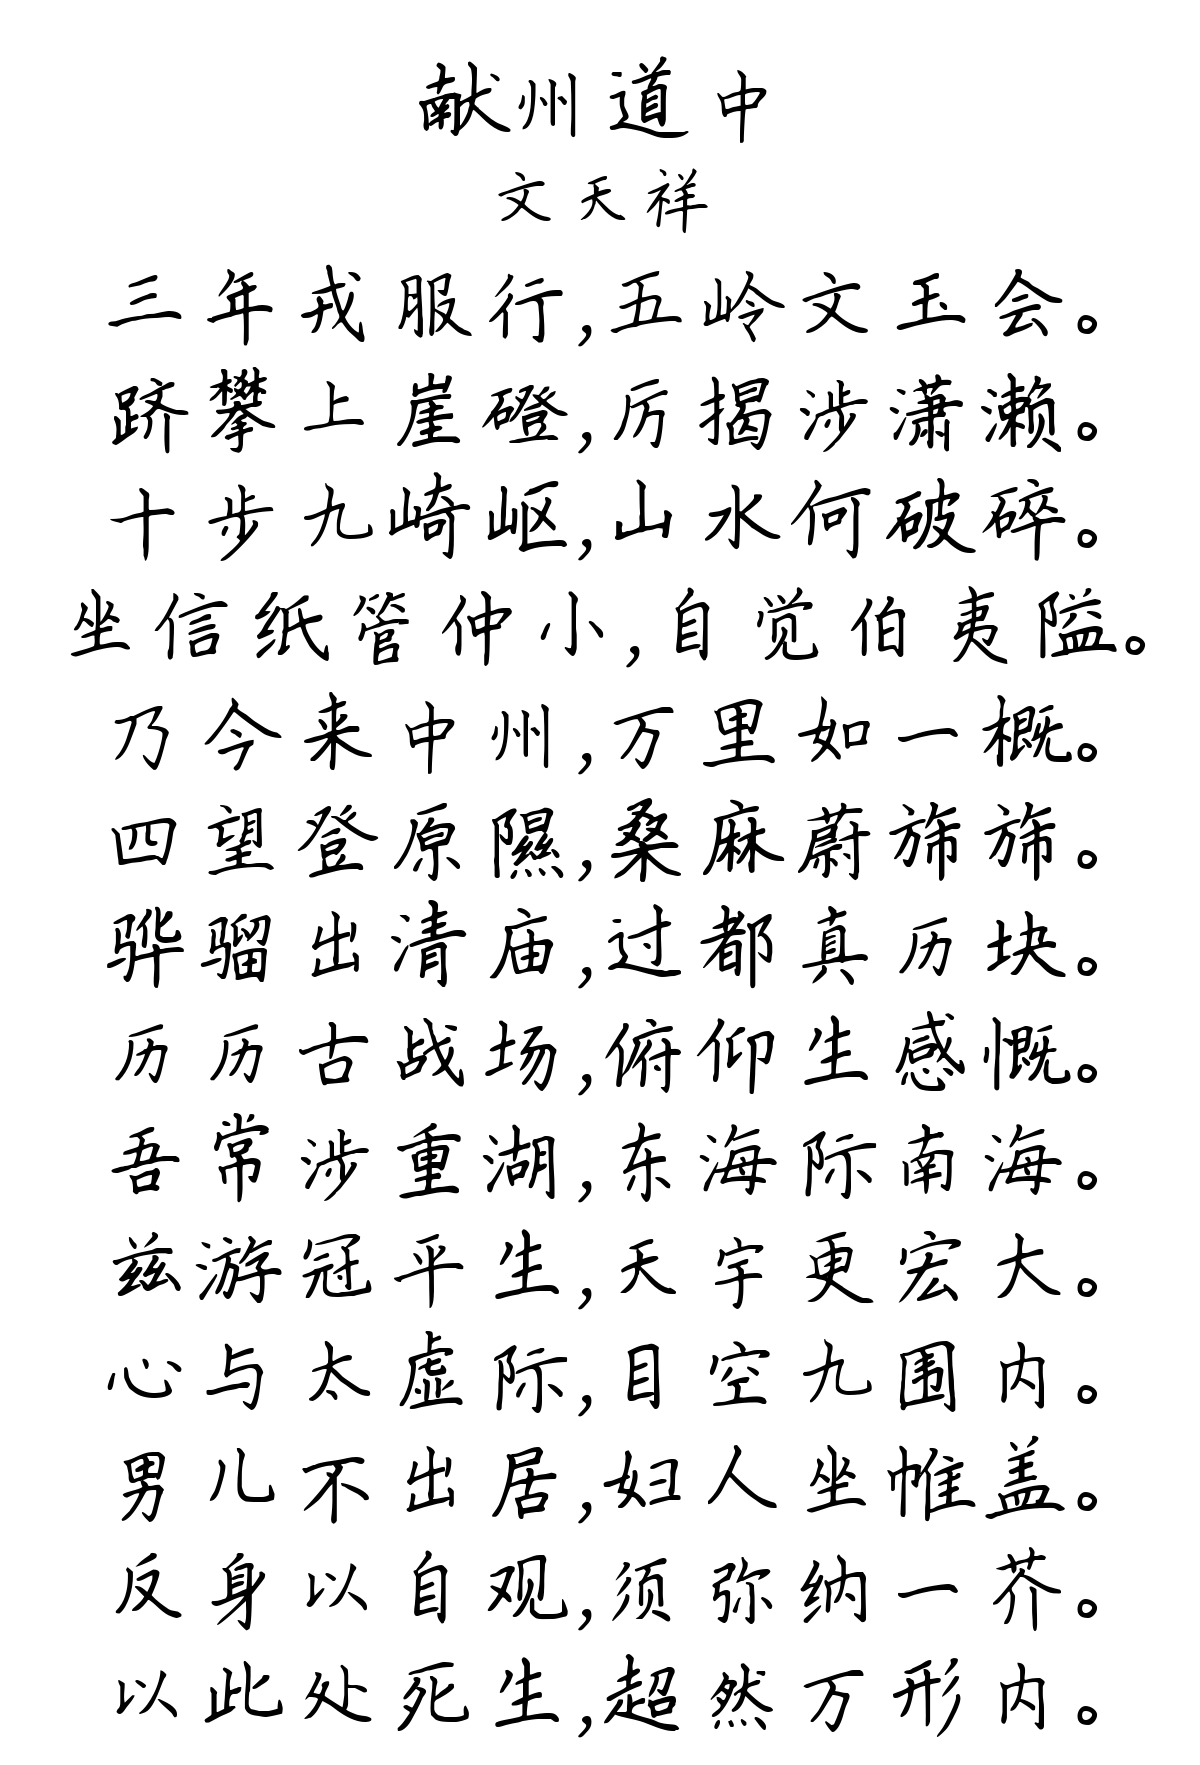 献州道中
文天祥
三年戎服行,五岭文玉会。
跻攀上崖磴,厉揭涉潇濑。
十步九崎岖,山水何破碎。
坐信纸管仲小,自觉伯夷隘。
乃今来中州,万里如一概。
四望登原隰,桑麻蔚旆旆。
骅骝出清庙,过都真历块。
历历古战场,俯仰生感慨。
吾常涉重湖,东海际南海。
兹游冠平生,天宇更宏大。
心与太虚际,目空九围内。
男儿不出居,妇人坐帷盖。
反身以自观,须弥纳一芥。
以此处死生,超然万形内。